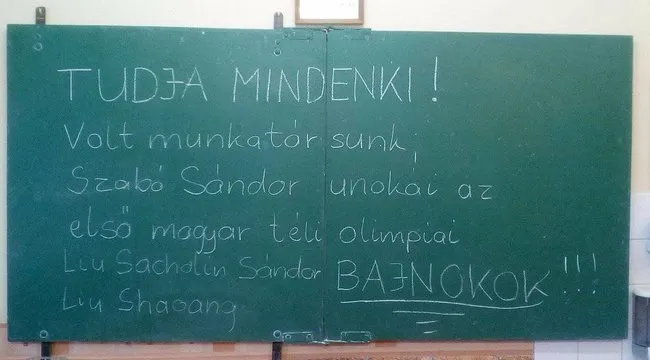 TUDJA MINDENKI!
Volt munkatársunk,
Szabó Sándor unokái az
első magyar téli olimpiai
Liu Sacholin Sándor BAJNOKOK!!!
Liu Shaoang